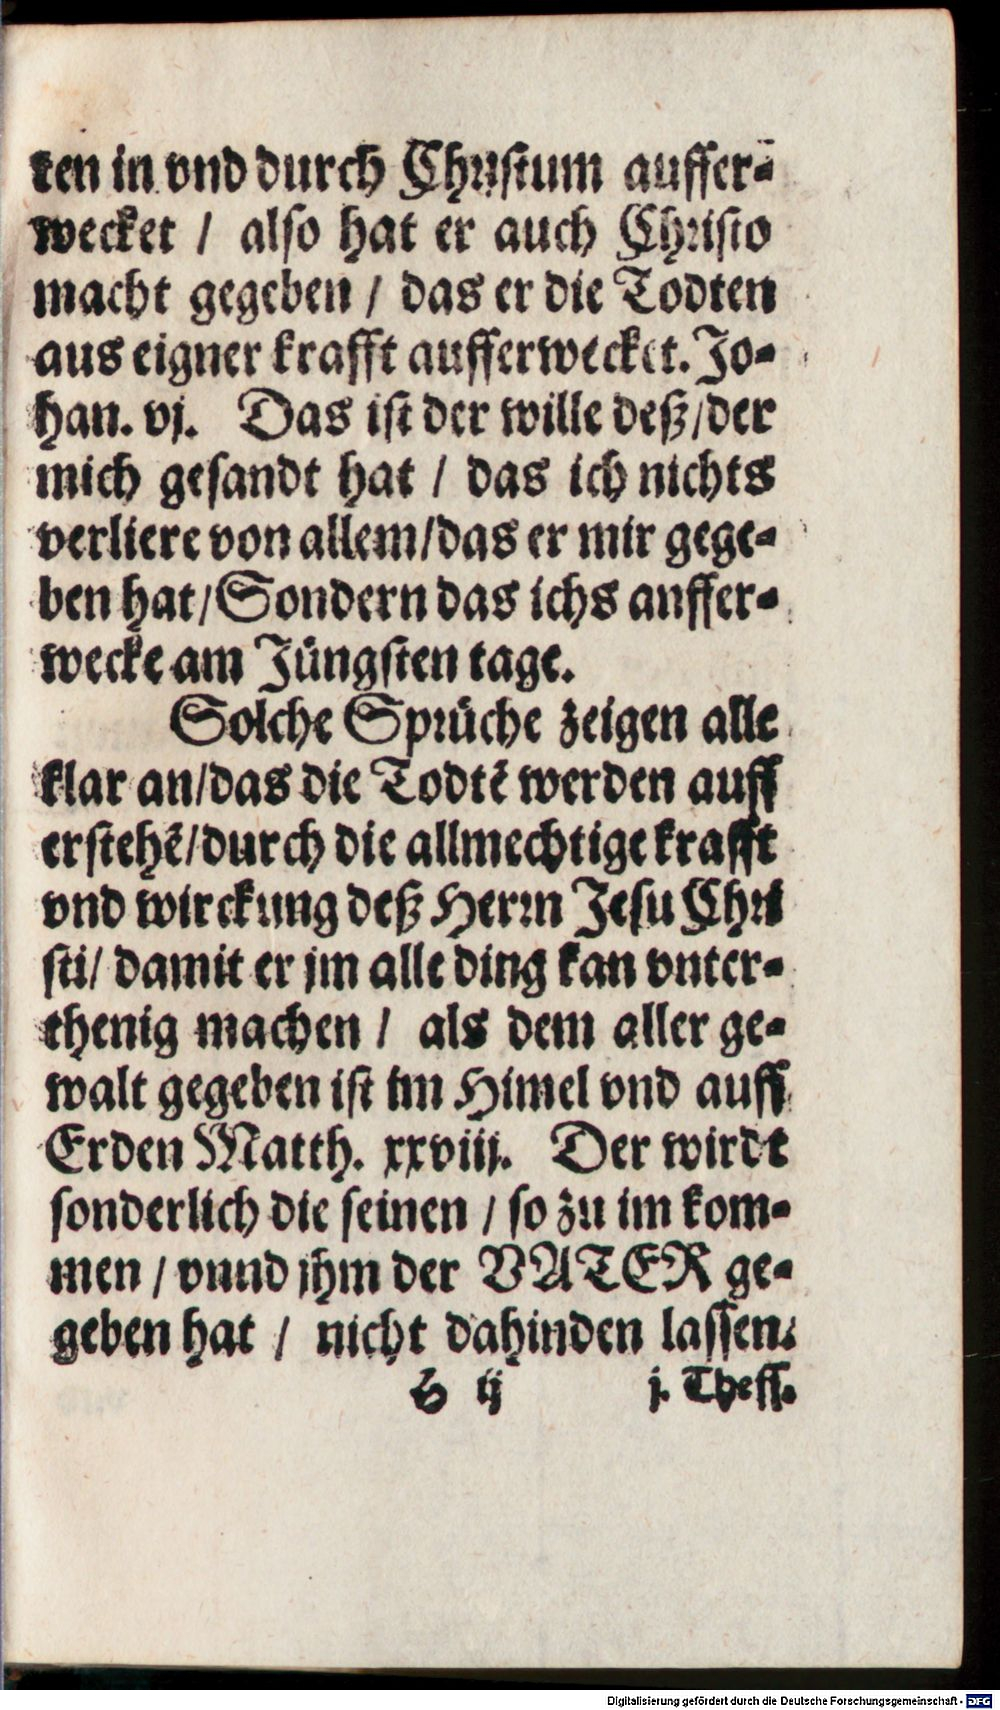 ten in vnd durch Christum auffer-
wecket / also hat er auch Christo
macht gegeben / das er die Todten
aus eigner krafft aufferwecket. Jo-
han. vj. Das ist der wille deß / der
mich gesandt hat / das ich nichts
verliere von allem / das er mir gege-
ben hat / Sondern das ichs anffer-
wecke am Jüngsten tage.
Solche Sprüche zeigen alle
klar an / das die Todtē werden auff
erstehē / durch die allmechtige krafft
vnd wirckung deß Herrn Jesu Chri
sti / damit er jm alle ding kan vnter-
thenig machen / als dem aller ge-
walt gegeben ist im Himel vnd auff
Erden Matth. xxviij. Der wirdt
sonderlich die seinen / so zu im kom-
men / vnnd jhm der VATER ge-
geben hat / nicht dahinden lassen.
ij j. Thess.
Digitalisierung gefördert durch die Deutsche Forschungsgemeinschaft - DFG